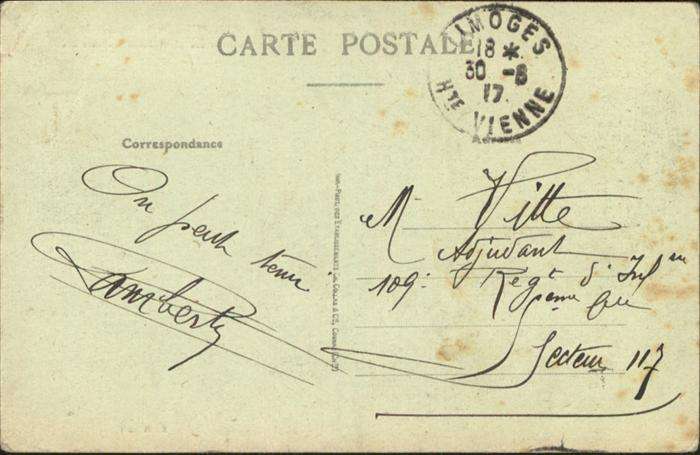 CARTE POSTALE
LIMOGES
18 *
30 - 6
17
Hte VIENNE
Correspondance
Adresse
On peut tenir
Lamberty
M Vitte
Adjudant
109e Regt d'Infrie
Cie
Secteur 117